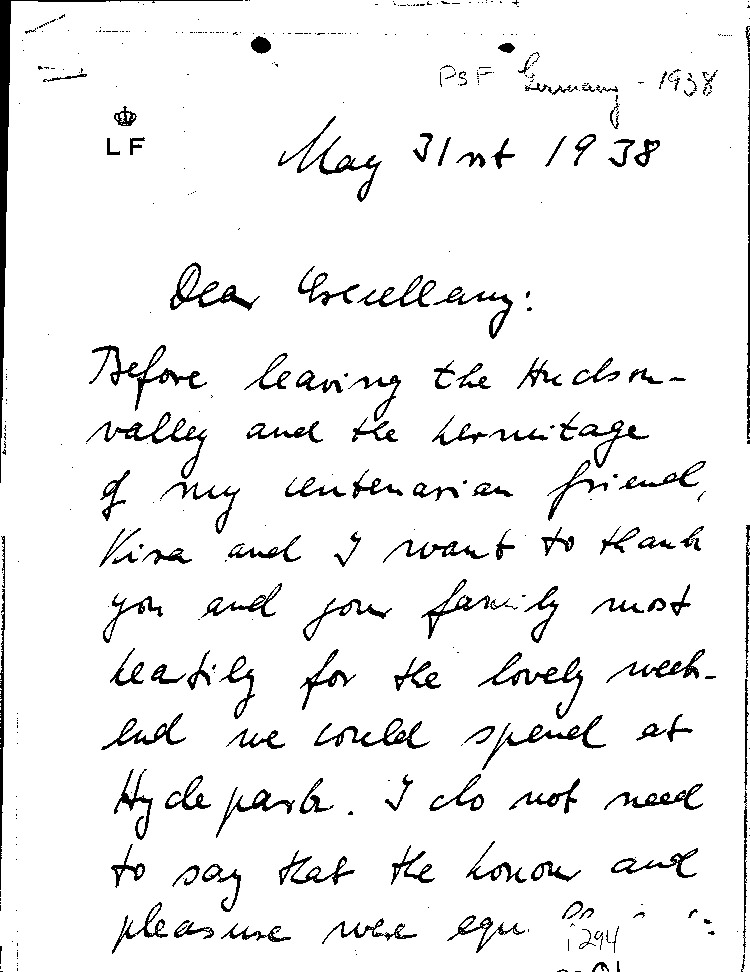 PSF Germany - 1938
LF
May 31st 1938
Dear Excellency:
Before leaving the Hudson-
valley and the hermitage
of my centenarian friend,
Kira and I want to thank
you and your family most
heartily for the lovely week-
end we could spend at
Hyde park. I do not need
to say that the honour and
pleasure were equ
i294